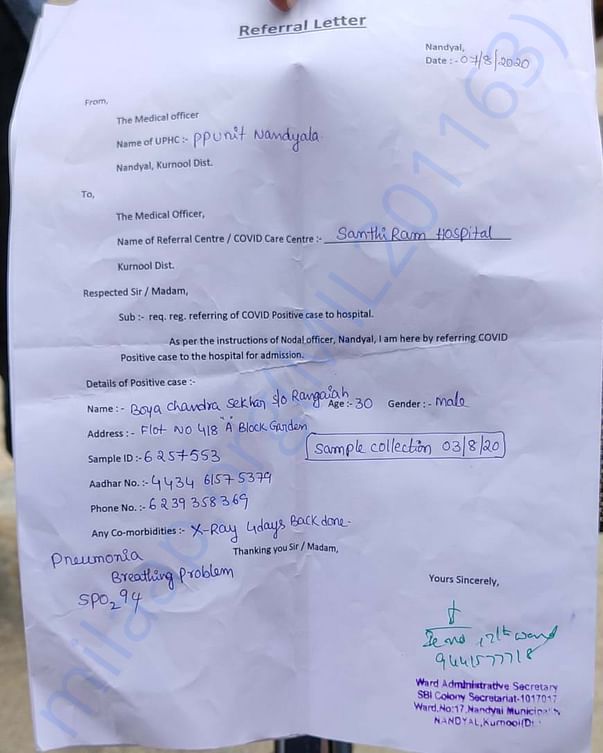 Referral Letter
Nandyal,
Date :- 07/8/2020
From,
The Medical officer
Name of UPHC :- PPUnit Nandyala
Nandyal, Kurnool Dist.
To,
The Medical Officer,
Name of Referral Centre / COVID Care Centre :- Santhi Ram Hospital
Kurnool Dist.
Respected Sir / Madam,
Sub :- req. reg. referring of COVID Positive case to hospital.
As per the instructions of Nodal officer, Nandyal, I am here by referring COVID
Positive case to the hospital for admission.
Details of Positive case :-
Name :- Boya Chandra Sekhar s/o Rangaiah Age :- 30 Gender :- male
Address :- Flot NO 418 A Block Garden
Sample ID :- 6257553
Sample collection 03/8/20
Aadhar No. :- 4434 6157 5379
Phone No. :- 6239358369
Any Co-morbidities :- X-Ray 4days Back done-
Pneumonia
Thanking you Sir / Madam,
Breathing Problem
SPO2 94
Yours Sincerely,
9441577718
Ward Administrative Secretary
SBI Colony Secretariat-1017017
Ward.No:17, Nandyal
NANDYAL, Kurnool
milaap.org/MIL2011163)